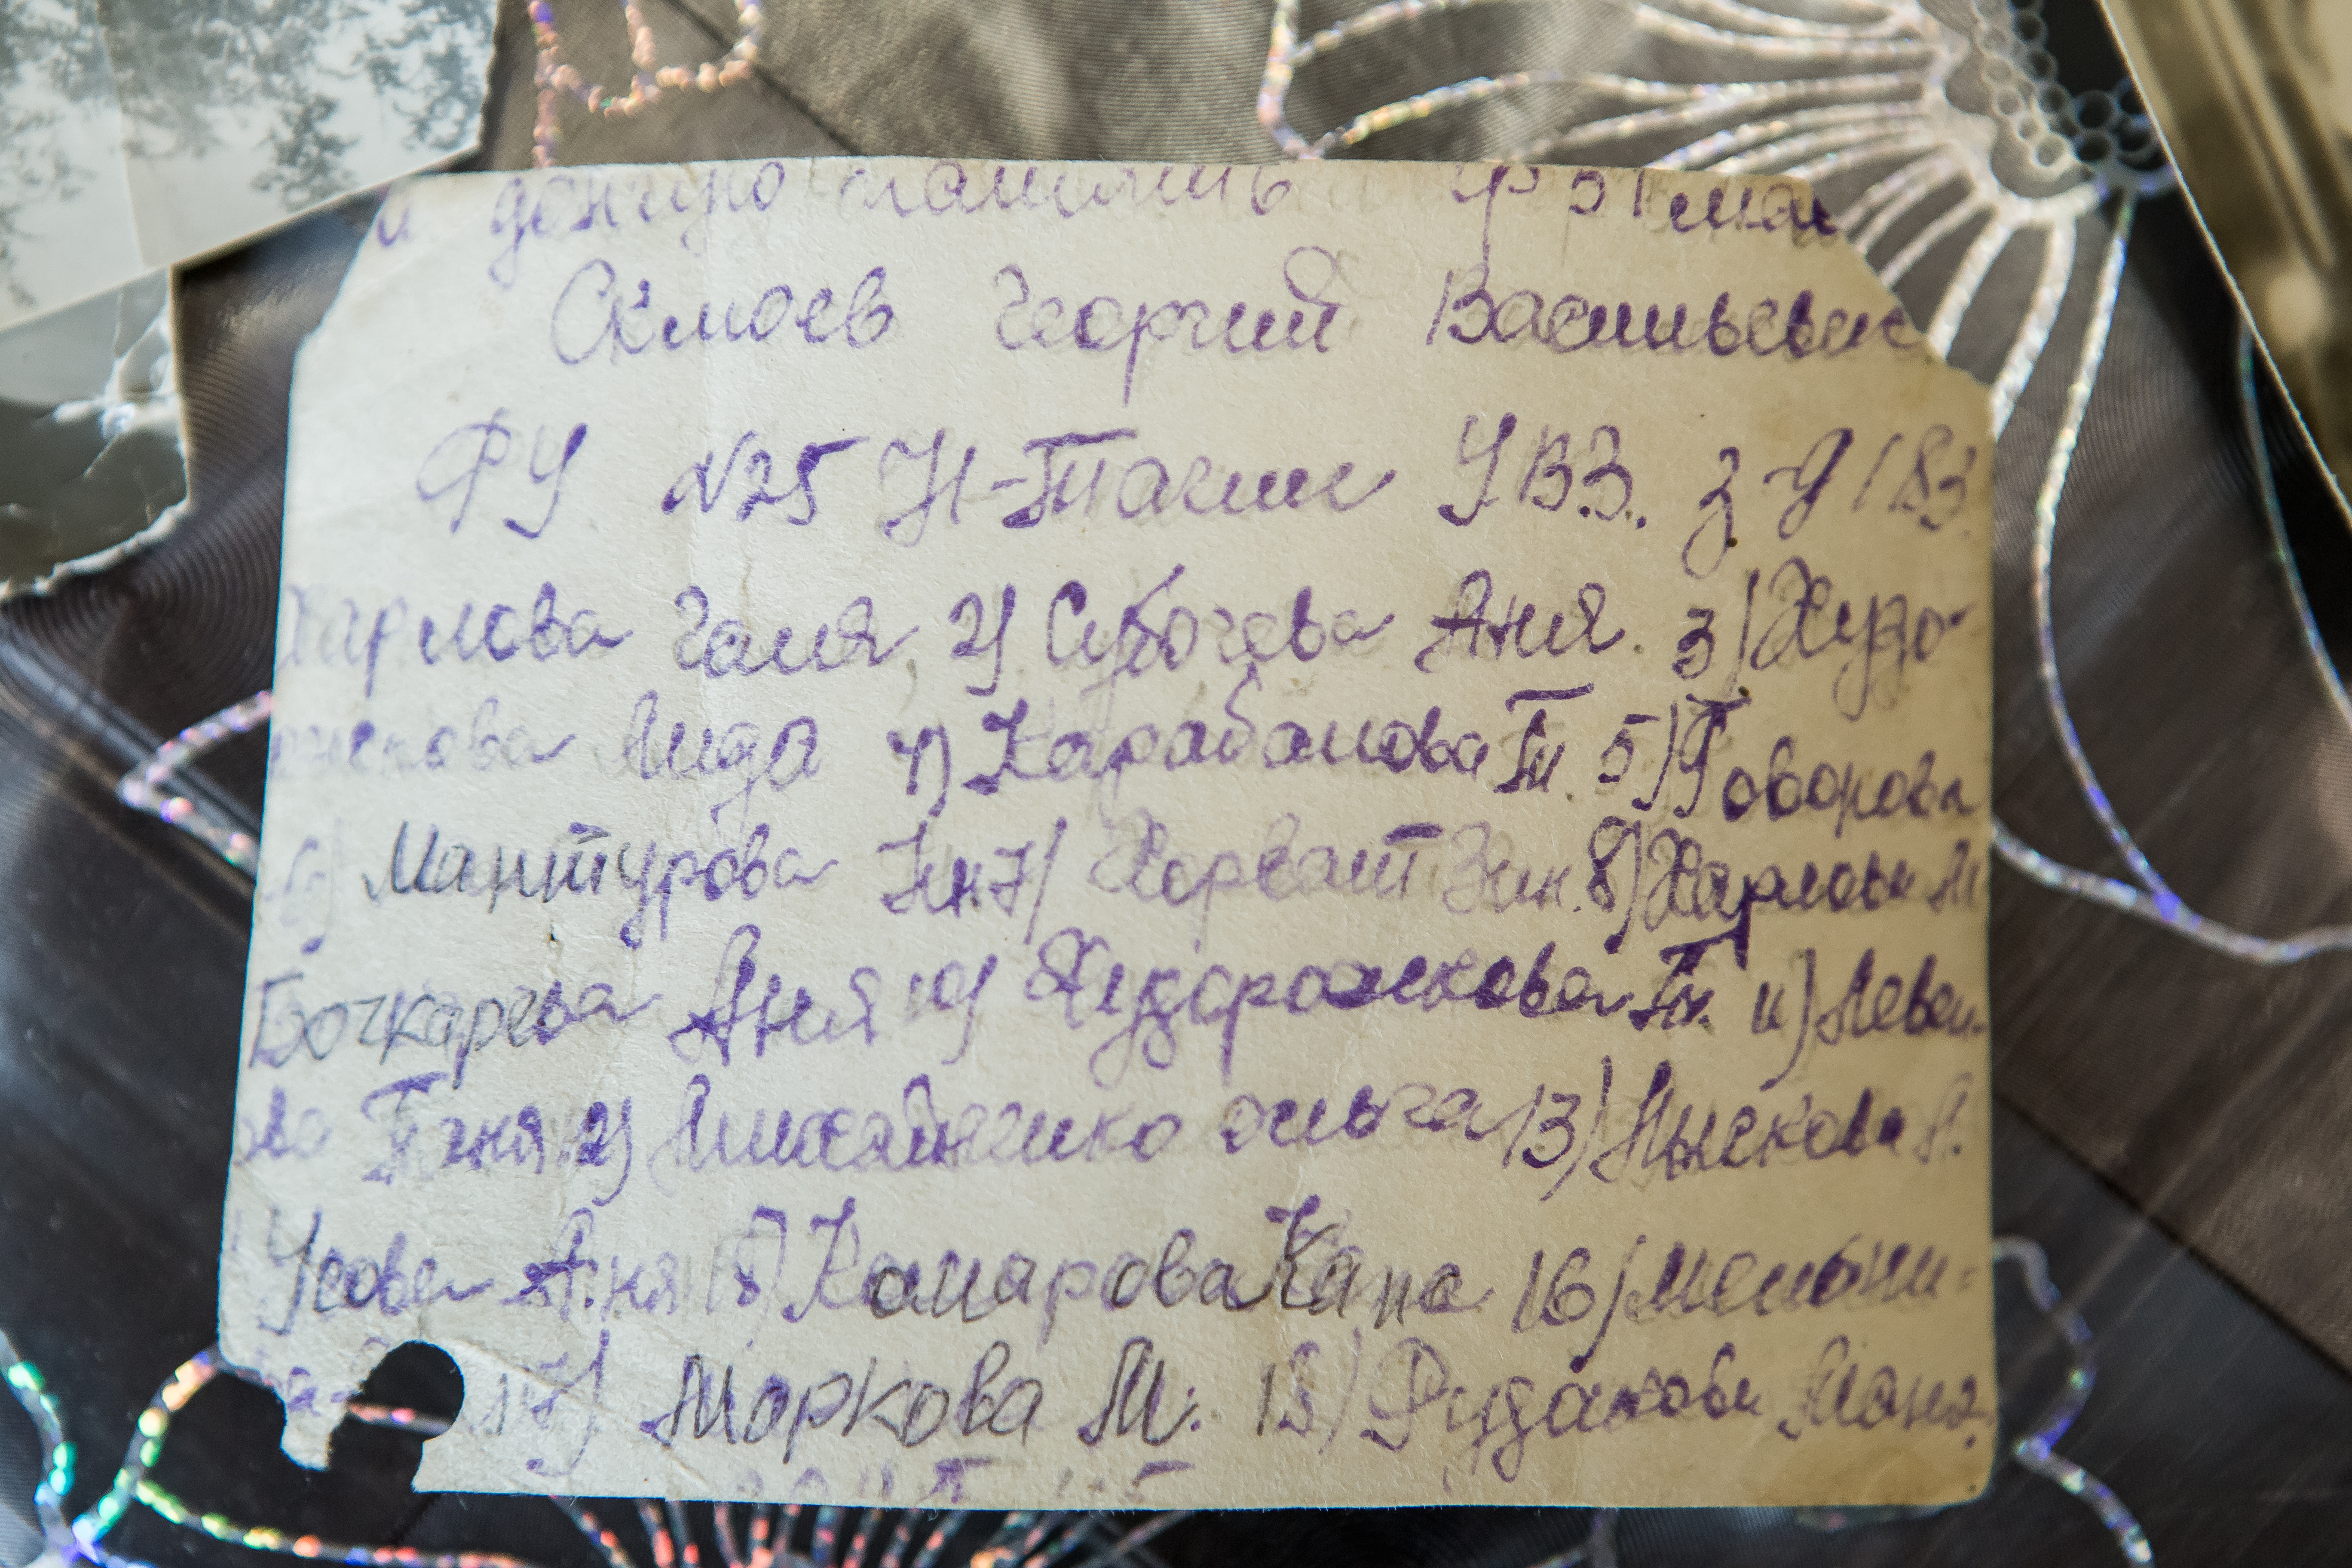 и
Скмоев Георгий Васильевич
ФУ №25 Н-Тагил УВЗ. З-д 183.
Харлова Галя, 2) Субочева Аня. 3) Худо-
Лида 4) Карабанова Тн. 5) Говорова
6) Мантурова Нн. 7) Хорват Зин. 8) Харлова М
Бочкарева Аня 10) Худорожкова Тн. 11)
ова Таня 12) Ольга 13) Лыскова
Усова Аня 15) Комарова Капа 16) Мельни-
ва 17) Моркова М. 18) Рудакова Маня.